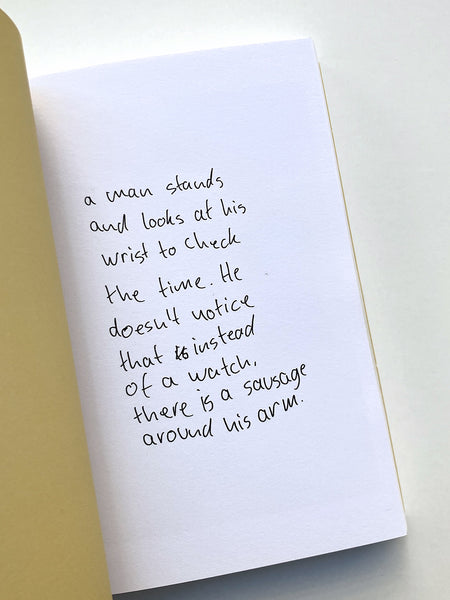 a man stands
and looks at his
wrist to check
the time. He
doesn't notice
that instead
of a watch,
there is a sausage
around his arm.